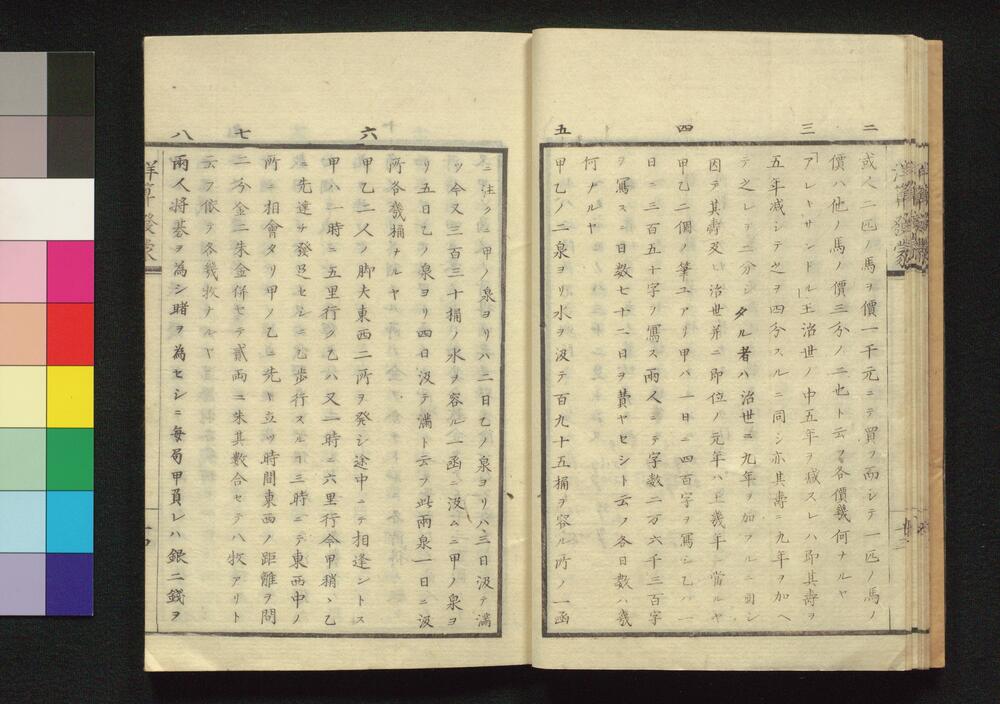 二
或人二匹ノ馬ヲ價一千元ニテ買フ而シテ一匹ノ馬ノ
價ハ他ノ馬ノ價三分ノ二也ト云フ各價幾何ナルヤ
三
「アレキサンドル」王治世ノ中五年ヲ減スレハ即其壽ヲ
五年減シテ之ヲ四分スルニ同シ亦其壽ニ九年ヲ加ヘ
テ之レヲ二分シタル者ハ治世ニ九年ヲ加フルニ同シ
因テ其壽及ヒ治世并ニ即位ノ元年ハ王幾年ニ當ルヤ
四
甲乙二個ノ筆工アリ甲ハ一日ニ四百字ヲ寫シ乙ハ一
日ニ三百五十字ヲ寫ス兩人ニテ字數二万六千三百字
ヲ寫スニ日数七十二日ヲ費ヤセシト云フ各日数ハ幾
何ナルヤ
五
甲乙ノ二泉ヨリ水ヲ汲テ百九十五桶ヲ容ル所ノ一函
ニ注クニ甲ノ泉ヨリハ二日乙ノ泉ヨリハ三日汲テ滿
ツ今又三百三十桶ノ水ヲ容ル一函ニ汲ムニ甲ノ泉ヨ
リ五日乙ノ泉ヨリ四日汲テ滿ト云フ此兩泉一日ニ汲
所各幾桶ナルヤ
六
甲乙二人ノ脚夫東西二所ヲ発シ途中ニテ相逢ントス
甲ハ一時ニ五里行ク乙ハ又一時ニ六里行今甲稍々乙
ニ先達テ發足セシニ乙歩行スルコト三時ニテ東西中ノ
所ニ相會タリ甲ノ乙ニ先キ立ツ時間東西ノ距離ヲ問
七
二分金二朱金併セテ貳両ニ朱其數合セテ八枚アリト
云フ依テ各幾枚ナルヤ
八
兩人将棊ヲ為シ賭ヲ為セシニ毎局甲負レハ銀二錢ヲ
洋算發蒙